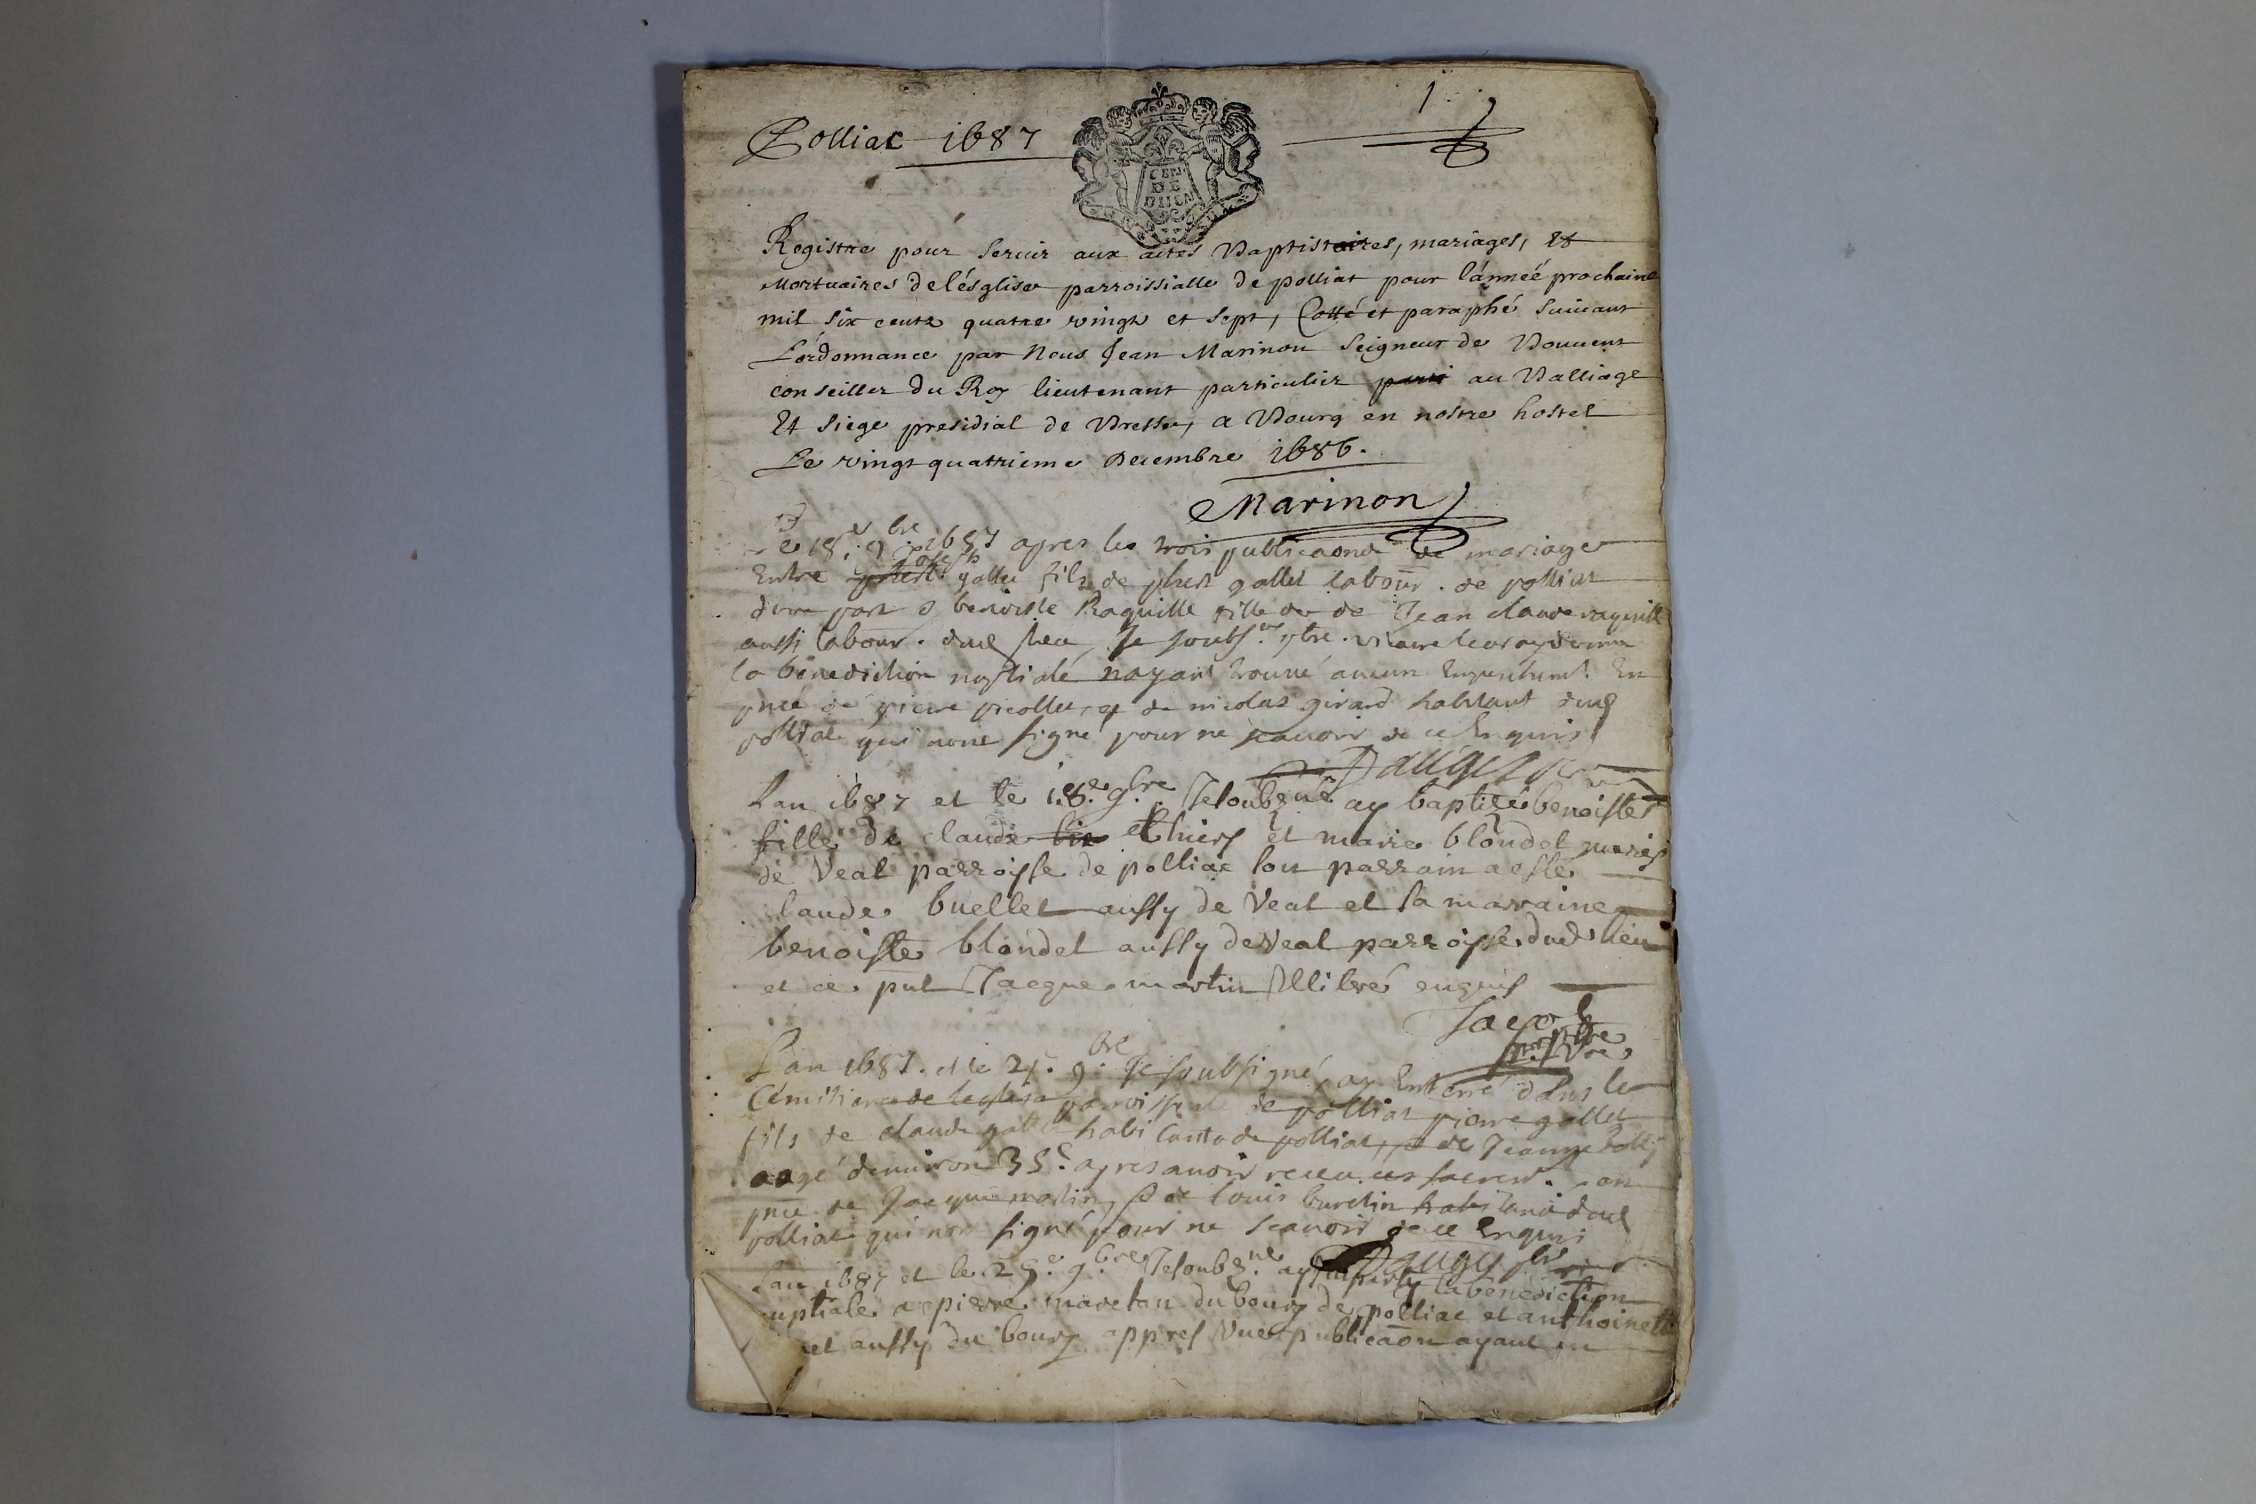 Polliat 1687
1
GEN
DE
DIION
Registre pour servir aux actes Baptistaires, mariages, Et
Mortuaires de l'ésglise parroissialle de polliat pour lánneé prochaine
mil six cents quatre vingt et sept, Cotté et paraphé suivant
L'ordonnance par Nous Jean Marinon seigneur de Bouvent
conseiller du Roy lieutenant particulier au Balliage
Et siege presidial de Bresse, a Bourg en nostre hostel
Le vingt quatrieme Decembre 1686.
Marinon
Le 18.e 9.bre 1687 apres les trois publicaons de mariage
Entre gallet fils de gallet labour. de polliat
dune part & benoiste Raquille fille de Jean claude raquille
aussi labour. dud lieu, Je soubs.né ptre. vicaire leur ay donné
la benediction nuptiale nayant trouvé aucun Empeschemt. En
pnce de pierre picollet, & de nicolas girard habitant dud
polliat qui nont signé pour ne scavoir de ce Enquis
Daugy
Lan 1687 et le 18.e 9.bre Je soubz.né ay baptizé benoiste
fille de claude thiers et marie blondel mariés
de Veal parroisse de polliat son parrain a esté
claude buellet aussy de Veal et la marraine
benoiste blondel aussy de Veal parroisse dud lieu
et ce pnt Jacque martin Illitré enquis
Jacob
ptre
Lan 1687. et le 21. 9.bre Je soubsigné ay Enterré dans le
Cemitiere de leglise parroissiale de polliat pierre gallet
fils de claude gallet habitants de polliat, & de Jeanne
aagé denviron 35 apres avoir receu ses sacremt. en
pnce de Jacque martin, & de louis buretin habitans dud
polliat qui nont signé pour ne scavoir de ce Enquis
Daugy
Lan 1687 et le 25.e 9.bre Je soubz.né ay Imparty la benediction
nuptiale a pierre mareton du bourg de polliat et anthoinette
et aussy du bourg appres Une publicaon ayant eu